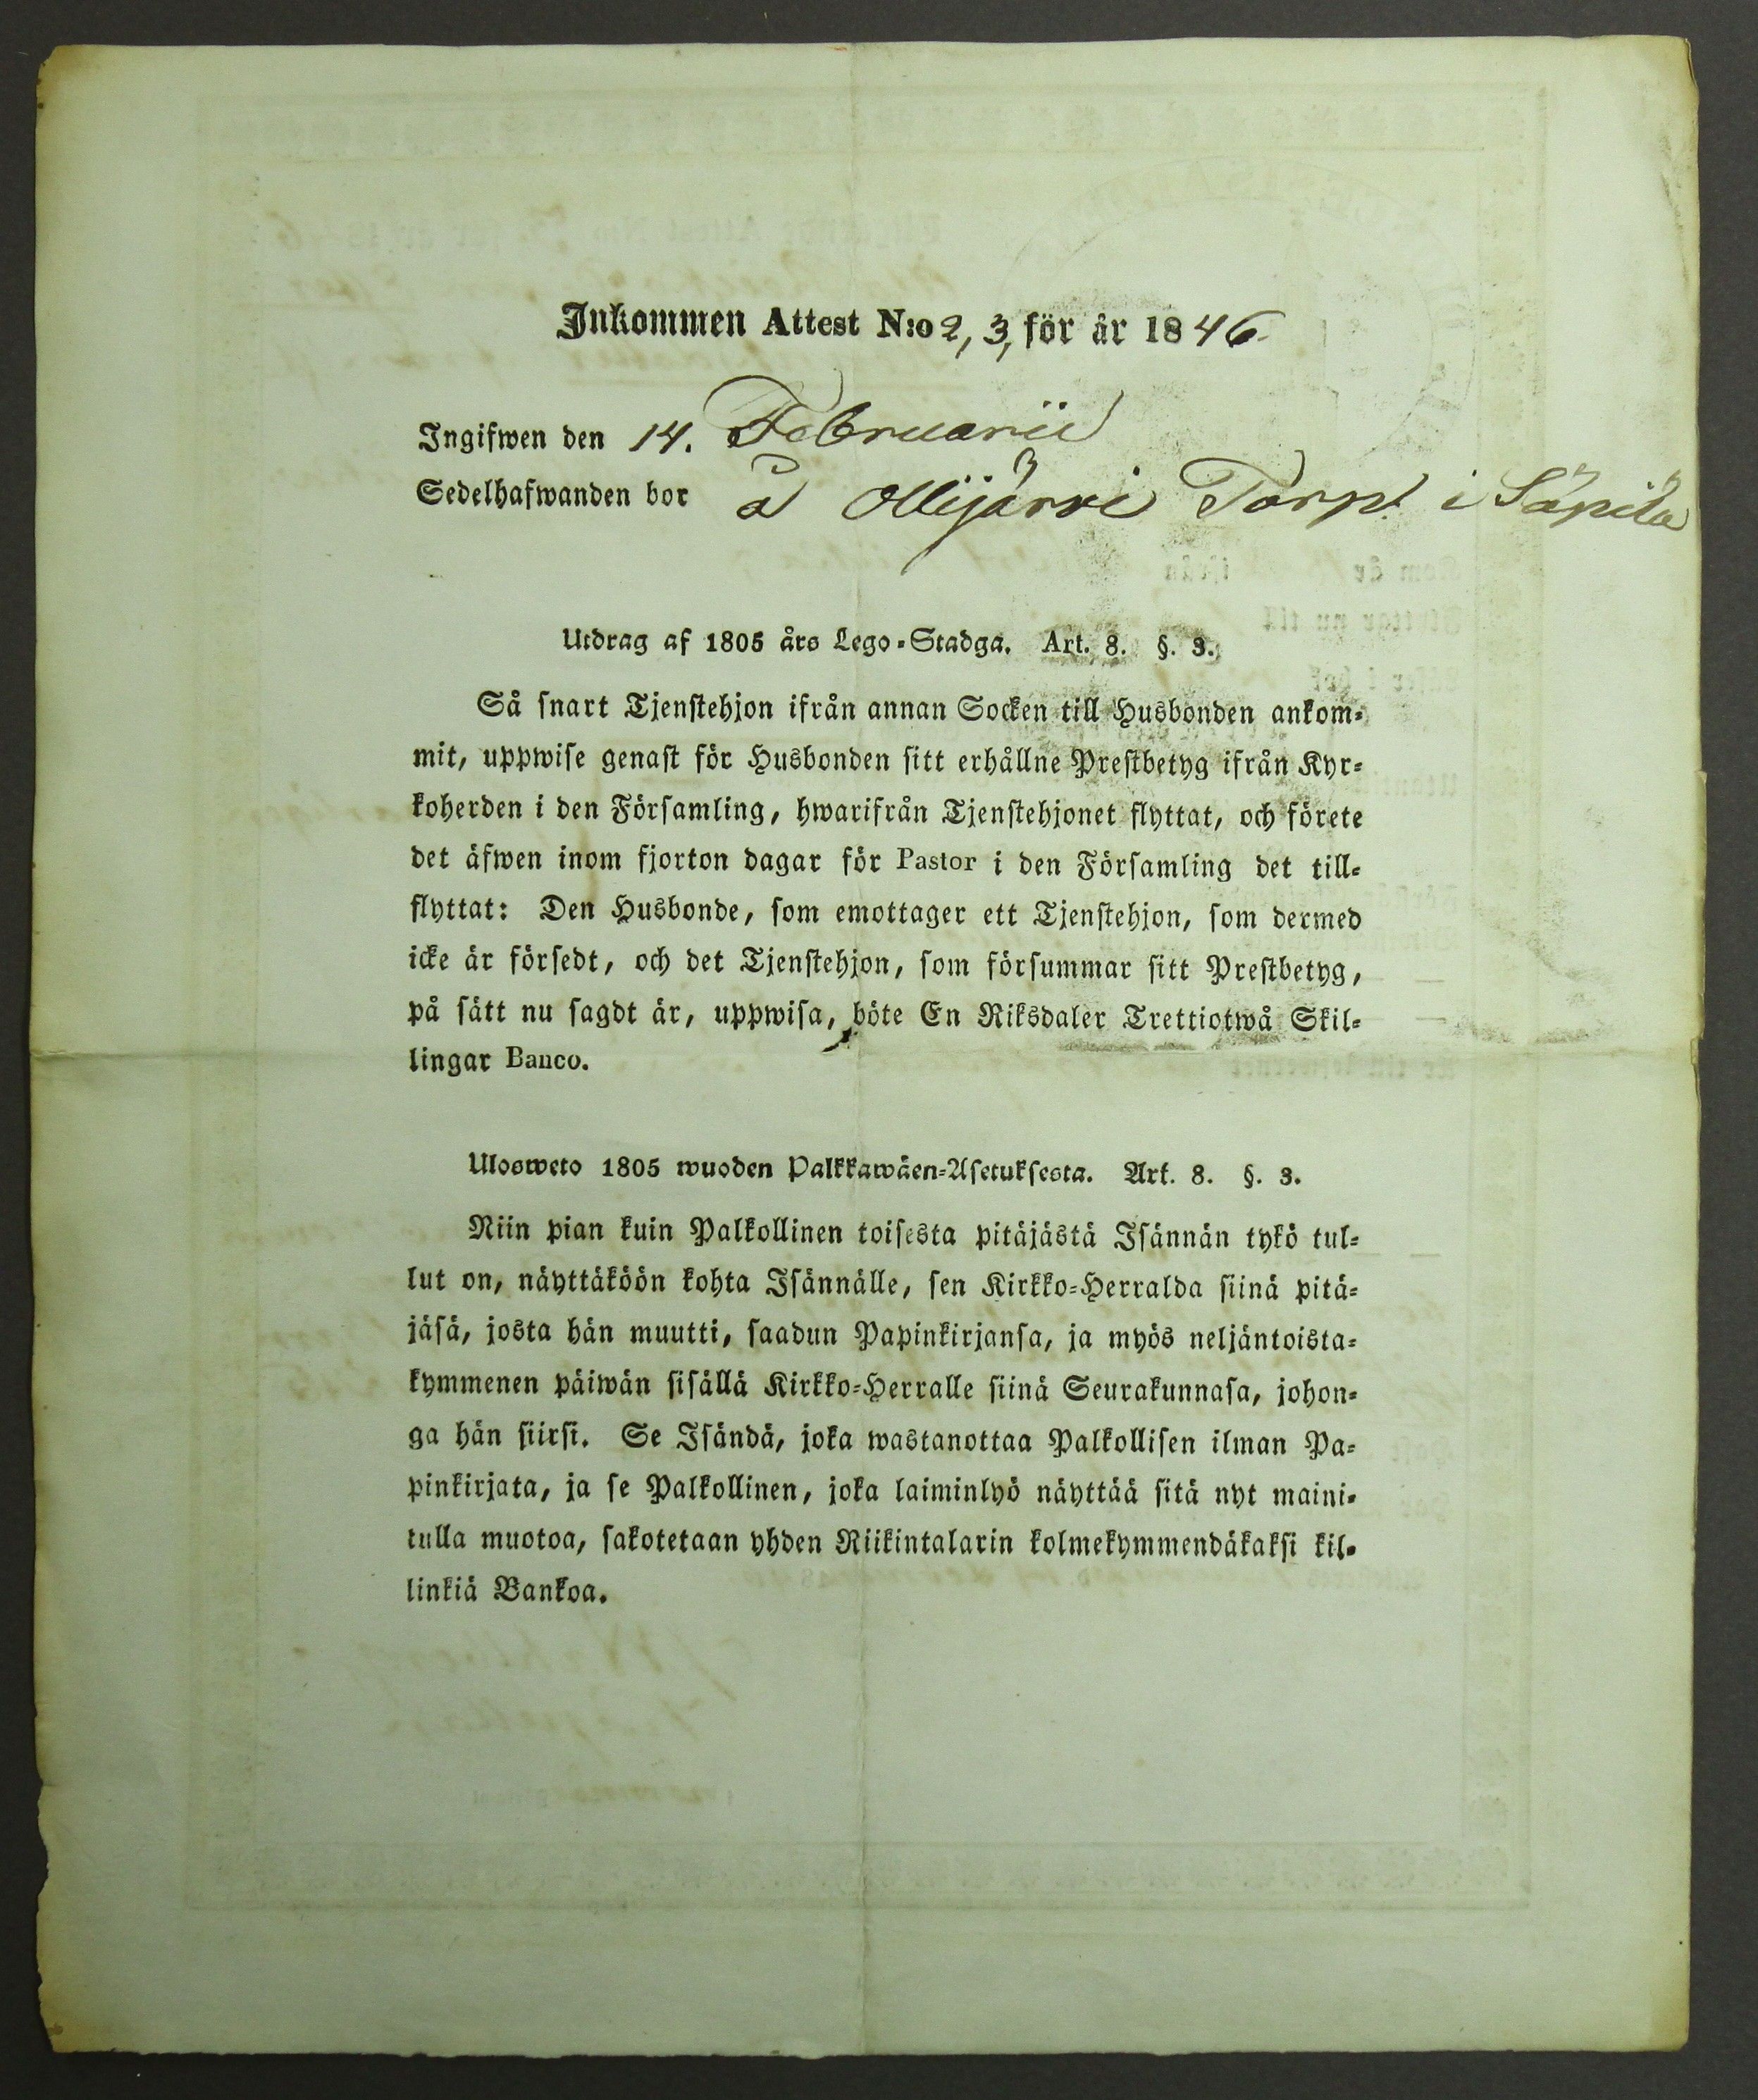 Inkommen Attest N:o 2, 3, för år 1846.
Ingifwen den 14. Februarii
Sedelhafwanden bor å Ollijärvi Torp i Säpilä
Utdrag af 1805 års Lego-Stadga. Art. 8. §. 3.
Så snart Tjenstehjon ifrån annan Socken till Husbonden ankom-
mit, uppwise genast för Husbonden sitt erhållne Prestbetyg ifrån Kyr-
koherden i den Församling, hwarifrån Tjenstehjonet flyttat, och förete
det äfwen inom fjorton dagar för Pastor i den Församling det till-
flyttat: Den Husbonde, som emottager ett Tjenstehjon, som dermed
icke är försedt, och det Tjenstehjon, som försummar sitt Prestbetyg,
på sätt nu sagdt är, uppwisa, böte En Riksdaler Trettiotwå Skil-
lingar Banco.
Ulosweto 1805 wuoden Palkkawäen-Asetuksesta. Art. 8. §. 3.
Niin pian kuin Palkollinen toisesta pitäjästä Isännän tykö tul-
lut on, näyttäköön kohta Isännälle, sen Kirkko-Herralda siinä pitä-
jäsä, josta hän muutti, saadun Papinkirjansa, ja myös neljäntoista-
kymmenen päiwän sisällä Kirkko-Herralle siinä Seurakunnasa, johon-
ga hän siirsi. Se Isändä, joka wastanottaa Palkollisen ilman Pa-
pinkirjata, ja se Palkollinen, joka laiminlyö näyttää sitä nyt maini-
tulla muotoa, sakotetaan yhden Riikintalarin kolmekymmendäkaksi kil-
linkiä Bankoa.